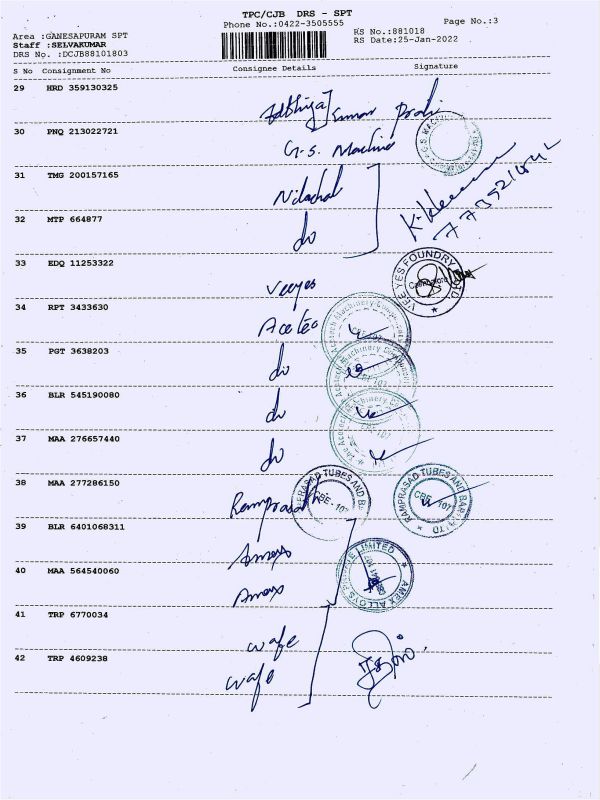 TPC/CJB DRS - SPT
Phone No.:0422-3505555
Page No.:3
Area :GANESAPURAM SPT
RS No.:881018
Staff :SELVAKUMAR
RS Date:25-Jan-2022
DRS No. :DCJB88101803
S No Consignment No Consignee Details Signature
29 HRD 359130325
Kumar
30 PNQ 213022721
G.S. Machine
31 TMG 200157165
Nilachal
32 MTP 664877
do
33 EDQ 11253322
Veeyes
VEE YES FOUNDRY
34 RPT 3433630
Acetec
35 PGT 3638203
do
36 BLR 545190080
do
37 MAA 276657440
do
38 MAA 277286150
Ramprasath
RAMPRASAD TUBES AND
CBE - 107
39 BLR 6401068311
Amex
40 MAA 564540060
Amex
AMEX ALLOYS LIMITED
41 TRP 6770034
wafe
42 TRP 4609238
wafe